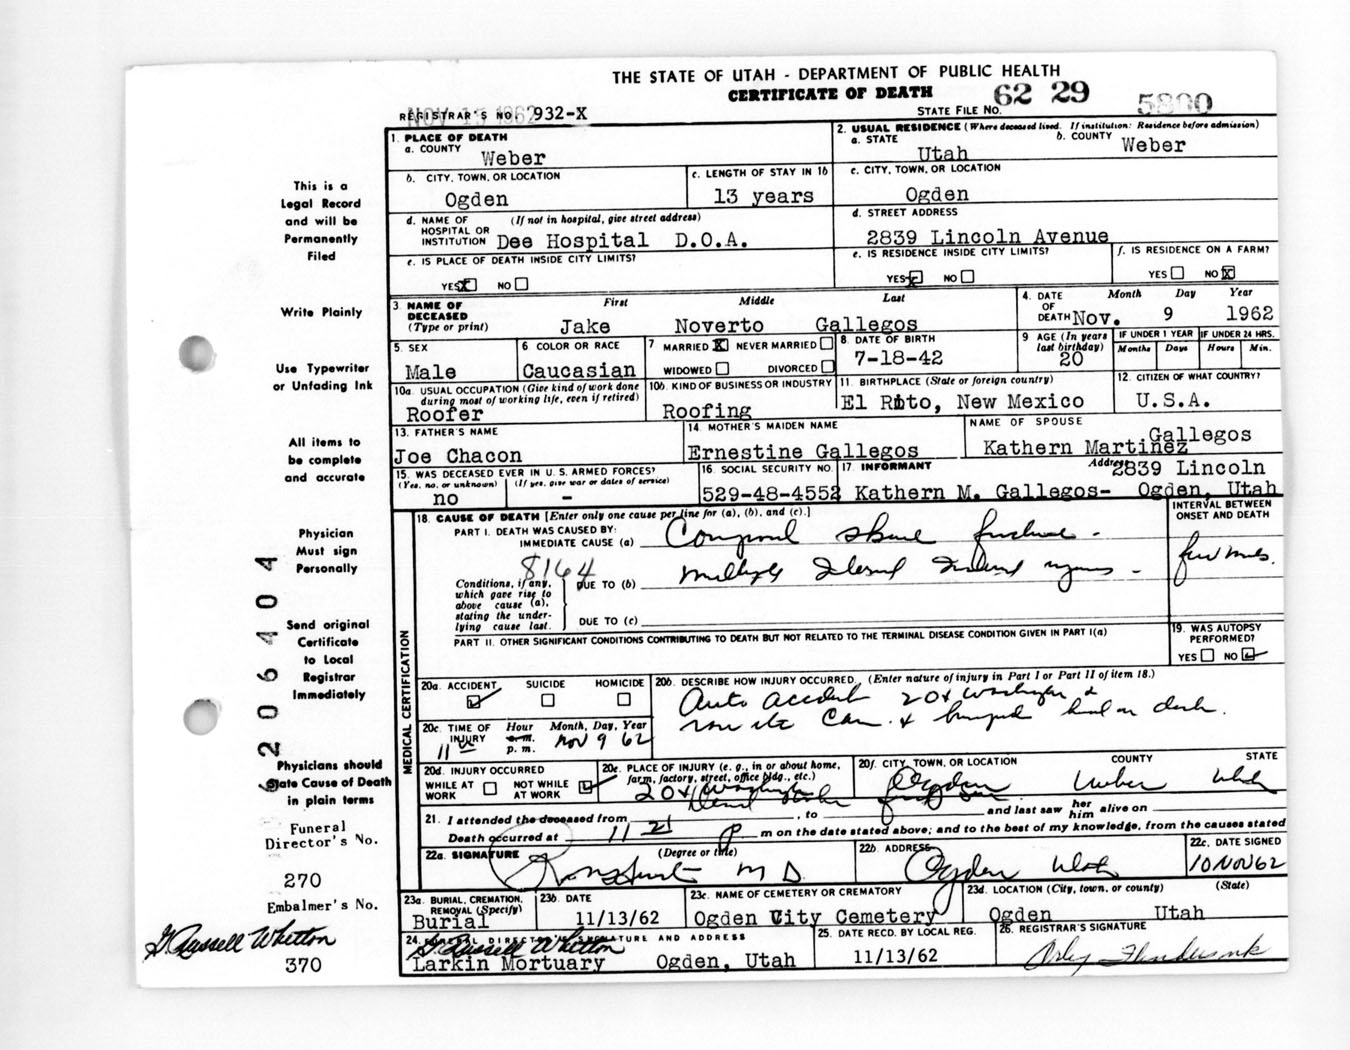 THE STATE OF UTAH - DEPARTMENT OF PUBLIC HEALTH
CERTIFICATE OF DEATH
REGISTRAR'S NO. 932-X
NOV 15 1962
STATE FILE NO. 62 29 5800
1. PLACE OF DEATH
a. COUNTY
Weber
2. USUAL RESIDENCE (Where deceased lived. If institution: Residence before admission)
a. STATE
Utah
b. COUNTY
Weber
b. CITY, TOWN, OR LOCATION
Ogden
c. LENGTH OF STAY IN 1b
13 years
c. CITY, TOWN, OR LOCATION
Ogden
d. NAME OF HOSPITAL OR INSTITUTION (If not in hospital, give street address)
Dee Hospital D.O.A.
d. STREET ADDRESS
2839 Lincoln Avenue
e. IS PLACE OF DEATH INSIDE CITY LIMITS?
YES X NO
e. IS RESIDENCE INSIDE CITY LIMITS?
YES X NO
f. IS RESIDENCE ON A FARM?
YES NO X
3. NAME OF DECEASED (Type or print)
First Middle Last
Jake Noverto Gallegos
4. DATE OF DEATH
Month Day Year
Nov. 9 1962
5. SEX
Male
6 COLOR OR RACE
Caucasian
7 MARRIED X NEVER MARRIED
WIDOWED DIVORCED
8. DATE OF BIRTH
7-18-42
9 AGE (In years last birthday)
20
IF UNDER 1 YEAR
Months Days
IF UNDER 24 HRS.
Hours Min.
10a. USUAL OCCUPATION (Give kind of work done during most of working life, even if retired)
Roofer
10b. KIND OF BUSINESS OR INDUSTRY
Roofing
11. BIRTHPLACE (State or foreign country)
El Rito, New Mexico
12. CITIZEN OF WHAT COUNTRY?
U.S.A.
13. FATHER'S NAME
Joe Chacon
14. MOTHER'S MAIDEN NAME
Ernestine Gallegos
NAME OF SPOUSE
Kathern Martinez Gallegos
15. WAS DECEASED EVER IN U. S. ARMED FORCES?
(Yes, no, or unknown) (If yes, give war or dates of service)
no -
16. SOCIAL SECURITY NO.
529-48-4552
17. INFORMANT
Kathern M. Gallegos-
Address
2839 Lincoln
Ogden, Utah
MEDICAL CERTIFICATION
18. CAUSE OF DEATH [Enter only one cause per line for (a), (b), and (c).]
INTERVAL BETWEEN ONSET AND DEATH
PART I. DEATH WAS CAUSED BY:
IMMEDIATE CAUSE (a)
8164
Conditions, if any, which gave rise to above cause (a), stating the underlying cause last.
DUE TO (b) Multiple
DUE TO (c)
few
PART II. OTHER SIGNIFICANT CONDITIONS CONTRIBUTING TO DEATH BUT NOT RELATED TO THE TERMINAL DISEASE CONDITION GIVEN IN PART I(a)
19. WAS AUTOPSY PERFORMED?
YES NO
20a. ACCIDENT SUICIDE HOMICIDE
20b. DESCRIBE HOW INJURY OCCURRED. (Enter nature of injury in Part I or Part II of item 18.)
Auto accident 20th Washington
20c. TIME OF INJURY
Hour Month, Day, Year
a.m.
p. m.
11 Nov 9 62
20d. INJURY OCCURRED
WHILE AT WORK NOT WHILE AT WORK
20e. PLACE OF INJURY (e. g., in or about home, farm, factory, street, office bldg., etc.)
20th Washington
20f. CITY, TOWN, OR LOCATION COUNTY STATE
Ogden Weber Utah
21. I attended the deceased from , to and last saw her him alive on
Death occurred at 11 21 P m on the date stated above; and to the best of my knowledge, from the causes stated
22a. SIGNATURE (Degree or title)
M D.
22b. ADDRESS
Ogden Utah
22c. DATE SIGNED
10 NOV 62
23a. BURIAL, CREMATION, REMOVAL (Specify)
Burial
23b. DATE
11/13/62
23c. NAME OF CEMETERY OR CREMATORY
Ogden City Cemetery
23d. LOCATION (City, town, or county) (State)
Ogden Utah
24. FUNERAL DIRECTOR'S SIGNATURE AND ADDRESS
G. Russell Whetton
Larkin Mortuary Ogden, Utah
25. DATE RECD. BY LOCAL REG.
11/13/62
26. REGISTRAR'S SIGNATURE
This is a
Legal Record
and will be
Permanently
Filed
Write Plainly
Use Typewriter
or Unfading Ink
All items to
be complete
and accurate
Physician
Must sign
Personally
Send original
Certificate
to Local
Registrar
Immediately
Physicians should
State Cause of Death
in plain terms
Funeral
Director's No.
270
Embalmer's No.
G. Russell Whetton
370
6206404